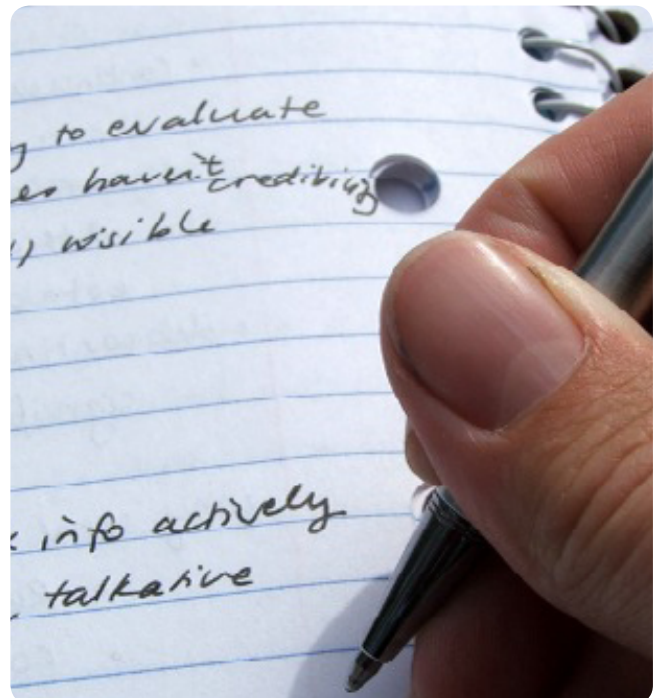 to evaluate
haven't credibility
visible
info actively
talkative